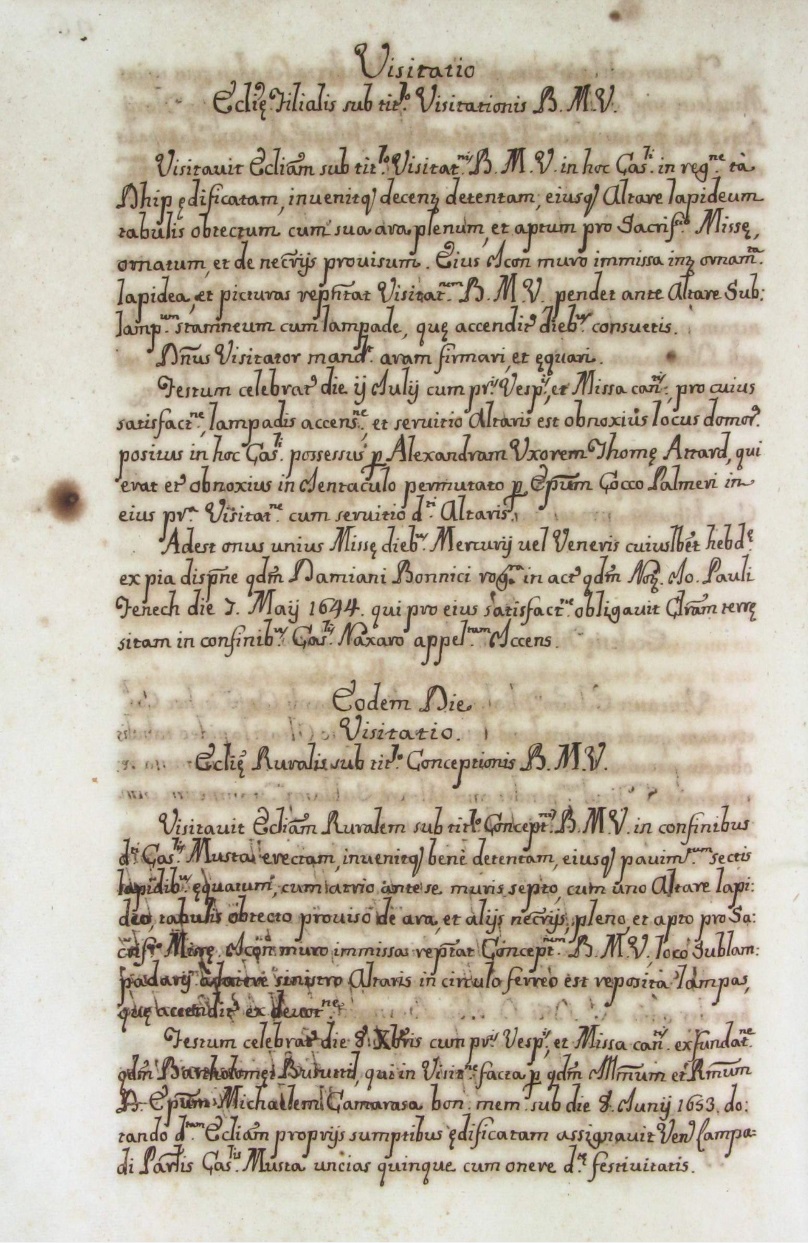 Visitatio
Ecclię Filialis sub titlo Visitationis B.M.V.
Visitavit Eccliam sub titlo Visitatnis B.M.V. in hoc Casli in regne ta
Dhip ędificatam, inuenitq decenz detentam, eiusq Altare lapideum
tabulis obtectum cum sua ara plenum, et aptum pro Sacrifcio Missę,
ornatum, et de necrijs prouisum. Eius Icon muro immissa inz ornamta
lapidea, et picturas repñtat Visitatnem B.M.V. pendet ante Altare Sub:
lampum stamneum cum lampade, quę accendit diebus consuetis.
Dñus Visitator mandt aram firmari, et ęquari.
Festum celebrat die ij Iulij cum pris Vespis, et Missa canri, pro cuius
satisfactne, lampadis accensne, et seruitio Altaris est obnoxius locus domor
positus in hoc Casli possessus p Alexandram Uxorem Thomę Attard, qui
erat et obnoxius in Ientaculo permutato p Epum Cocco Palmeri in
eius pra Visitatne cum seruitio dti Altaris.
Adest onus unius Missę diebus Mercurij uel Veneris cuiuslbet hebdę
ex pia dispne qdm Damiani Bonnici in act qdm Not. Io. Pauli
Fenech die 7. Maij 1644. qui pro eius satisfactne obligauit Clram terrę
sitam in confinibus Caslis Naxaro appeltam Iccens.
Eodem Die
Visitatio.
Ecclię Ruralis sub titlo Conceptionis B.M.V.
Visitavit Eccliam Ruralem sub titlo Conceptnis B.M.V. in confinibus
dti Caslis Musta erectam, inuenitq bene detentam, eiusq pauimtum sectis
lapidibus ęquatum, cum atrio ante se muris septo, cum uno Altare lapi:
deo, tabulis obtecto prouiso de ara, et alijs necrijs, pleno, et apto pro Sa:
crifcio Missę. Icon muro immissa reptat Conceptnem B.M.V. loco Sublam:
padarij a latere sinistro Altaris in circulo ferreo est reposita lampas,
quę accendit ex deuotne
Festum celebrat die 8. Xbris cum pris Vespis, et Missa canri ex fundatne
qdm Bartholomęi Buturid, qui in Visitne facta p qdm Illmum et Rmum
D. Epum Michaelem Camarasa bon. mem. sub die 8. Iunij 1653. do:
tando dtam Eccliam proprijs sumptibus ędificatam assignauit Ven Lampa:
di Parlis Caslis Musta uncias quinque cum onere dtę festiuitatis.